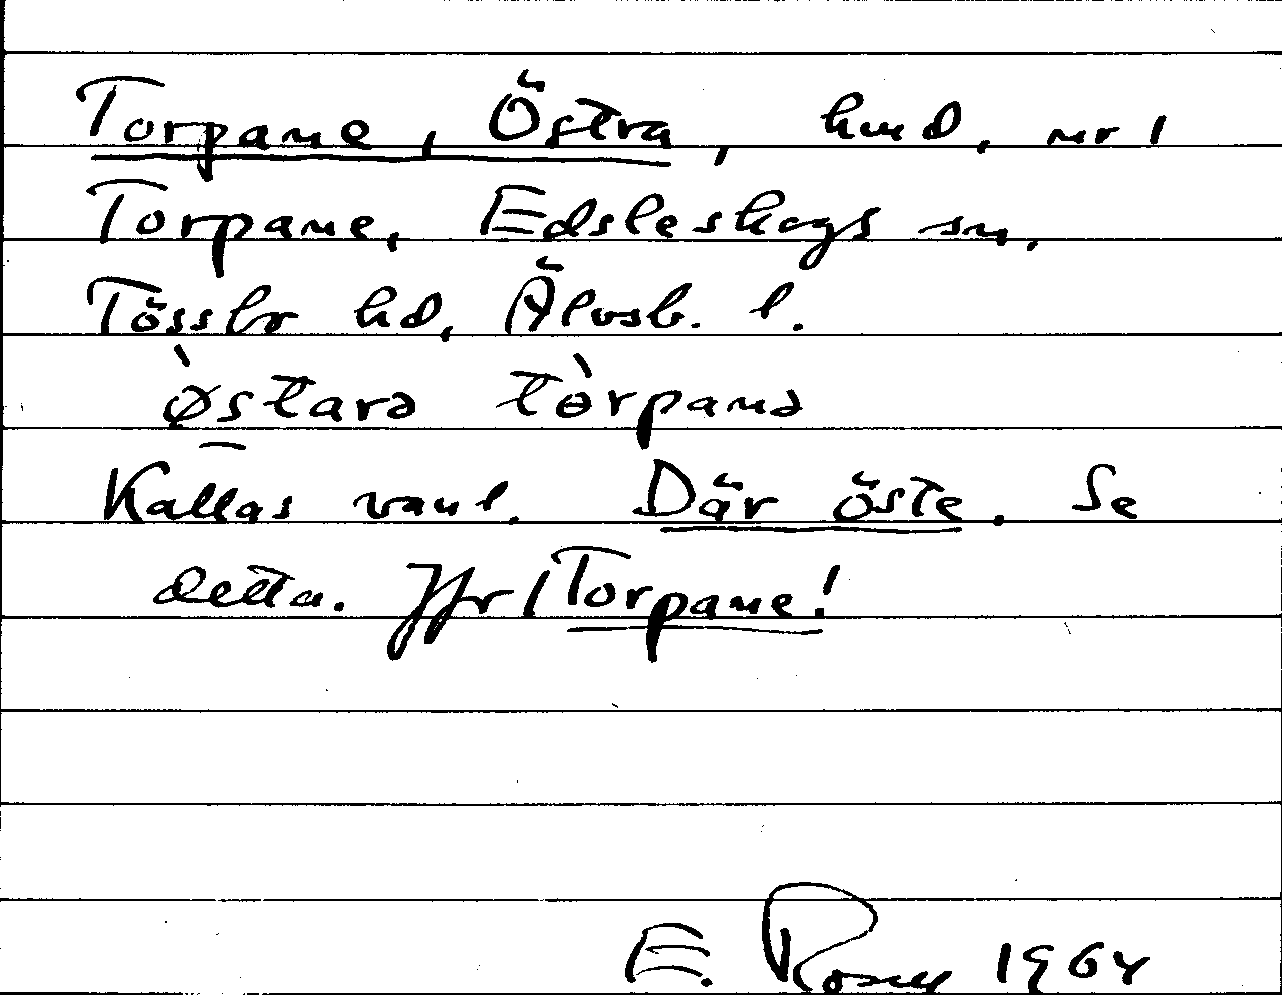 Torpane, Östra, hmd, nr 1
Torpane, Edsleskogs sn,
Tössbo hd, Älvsb. l.
`østarə tòrpanə
Kallas vanl. Där öste. Se
detta. Jfr 1 Torpane!
E. Rosell 1964